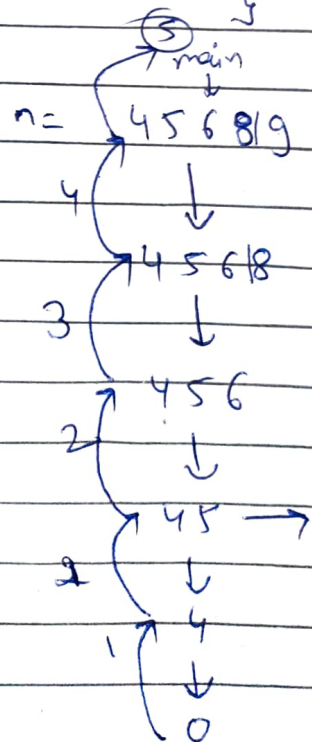 y
5
main
n= 4 5 6 8|9
4
4 5 6|8
3
4 5 6
2
4 5
1
4
0